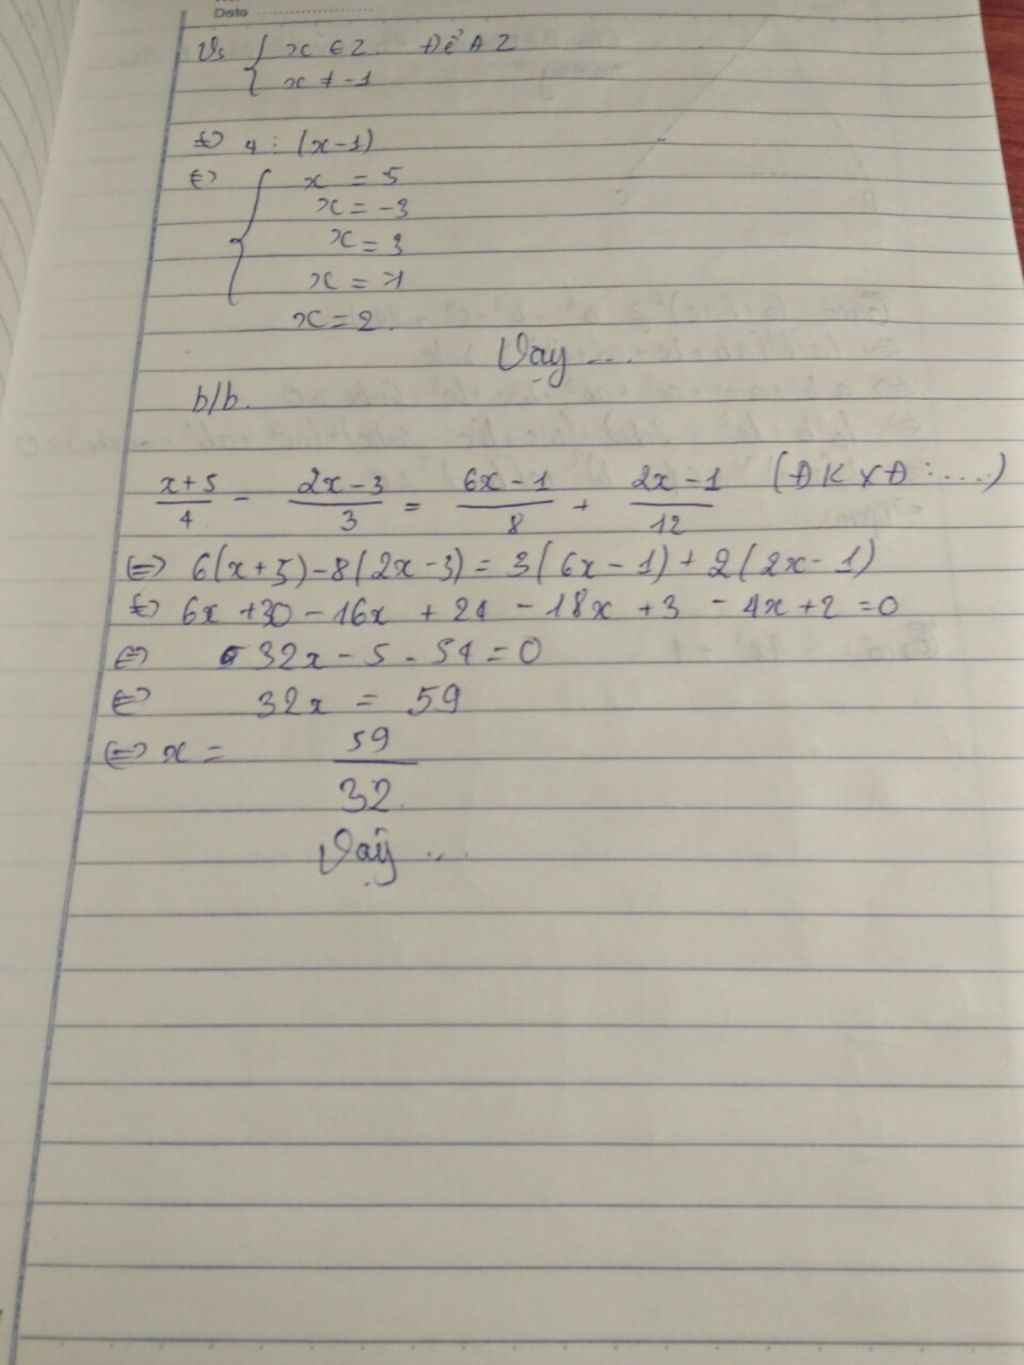 Date
Vs { x ∈ Z. Để A Z
x ≠ -1
⇔ 4 ⋮ (x-1)
⇔ { x = 5
x = -3
x = 3
x = -1
x = 2.
Vay ...
b/b.
x+5/4 - 2x-3/3 = 6x-1/8 + 2x-1/12 (ĐKXĐ:....)
⇔ 6(x+5)-8(2x-3) = 3(6x-1)+2(2x-1)
⇔ 6x+30-16x+24-18x+3-4x+2=0
⇔ 32x-5-54=0
⇔ 32x = 59
⇔ x = 59/32.
Vay ...